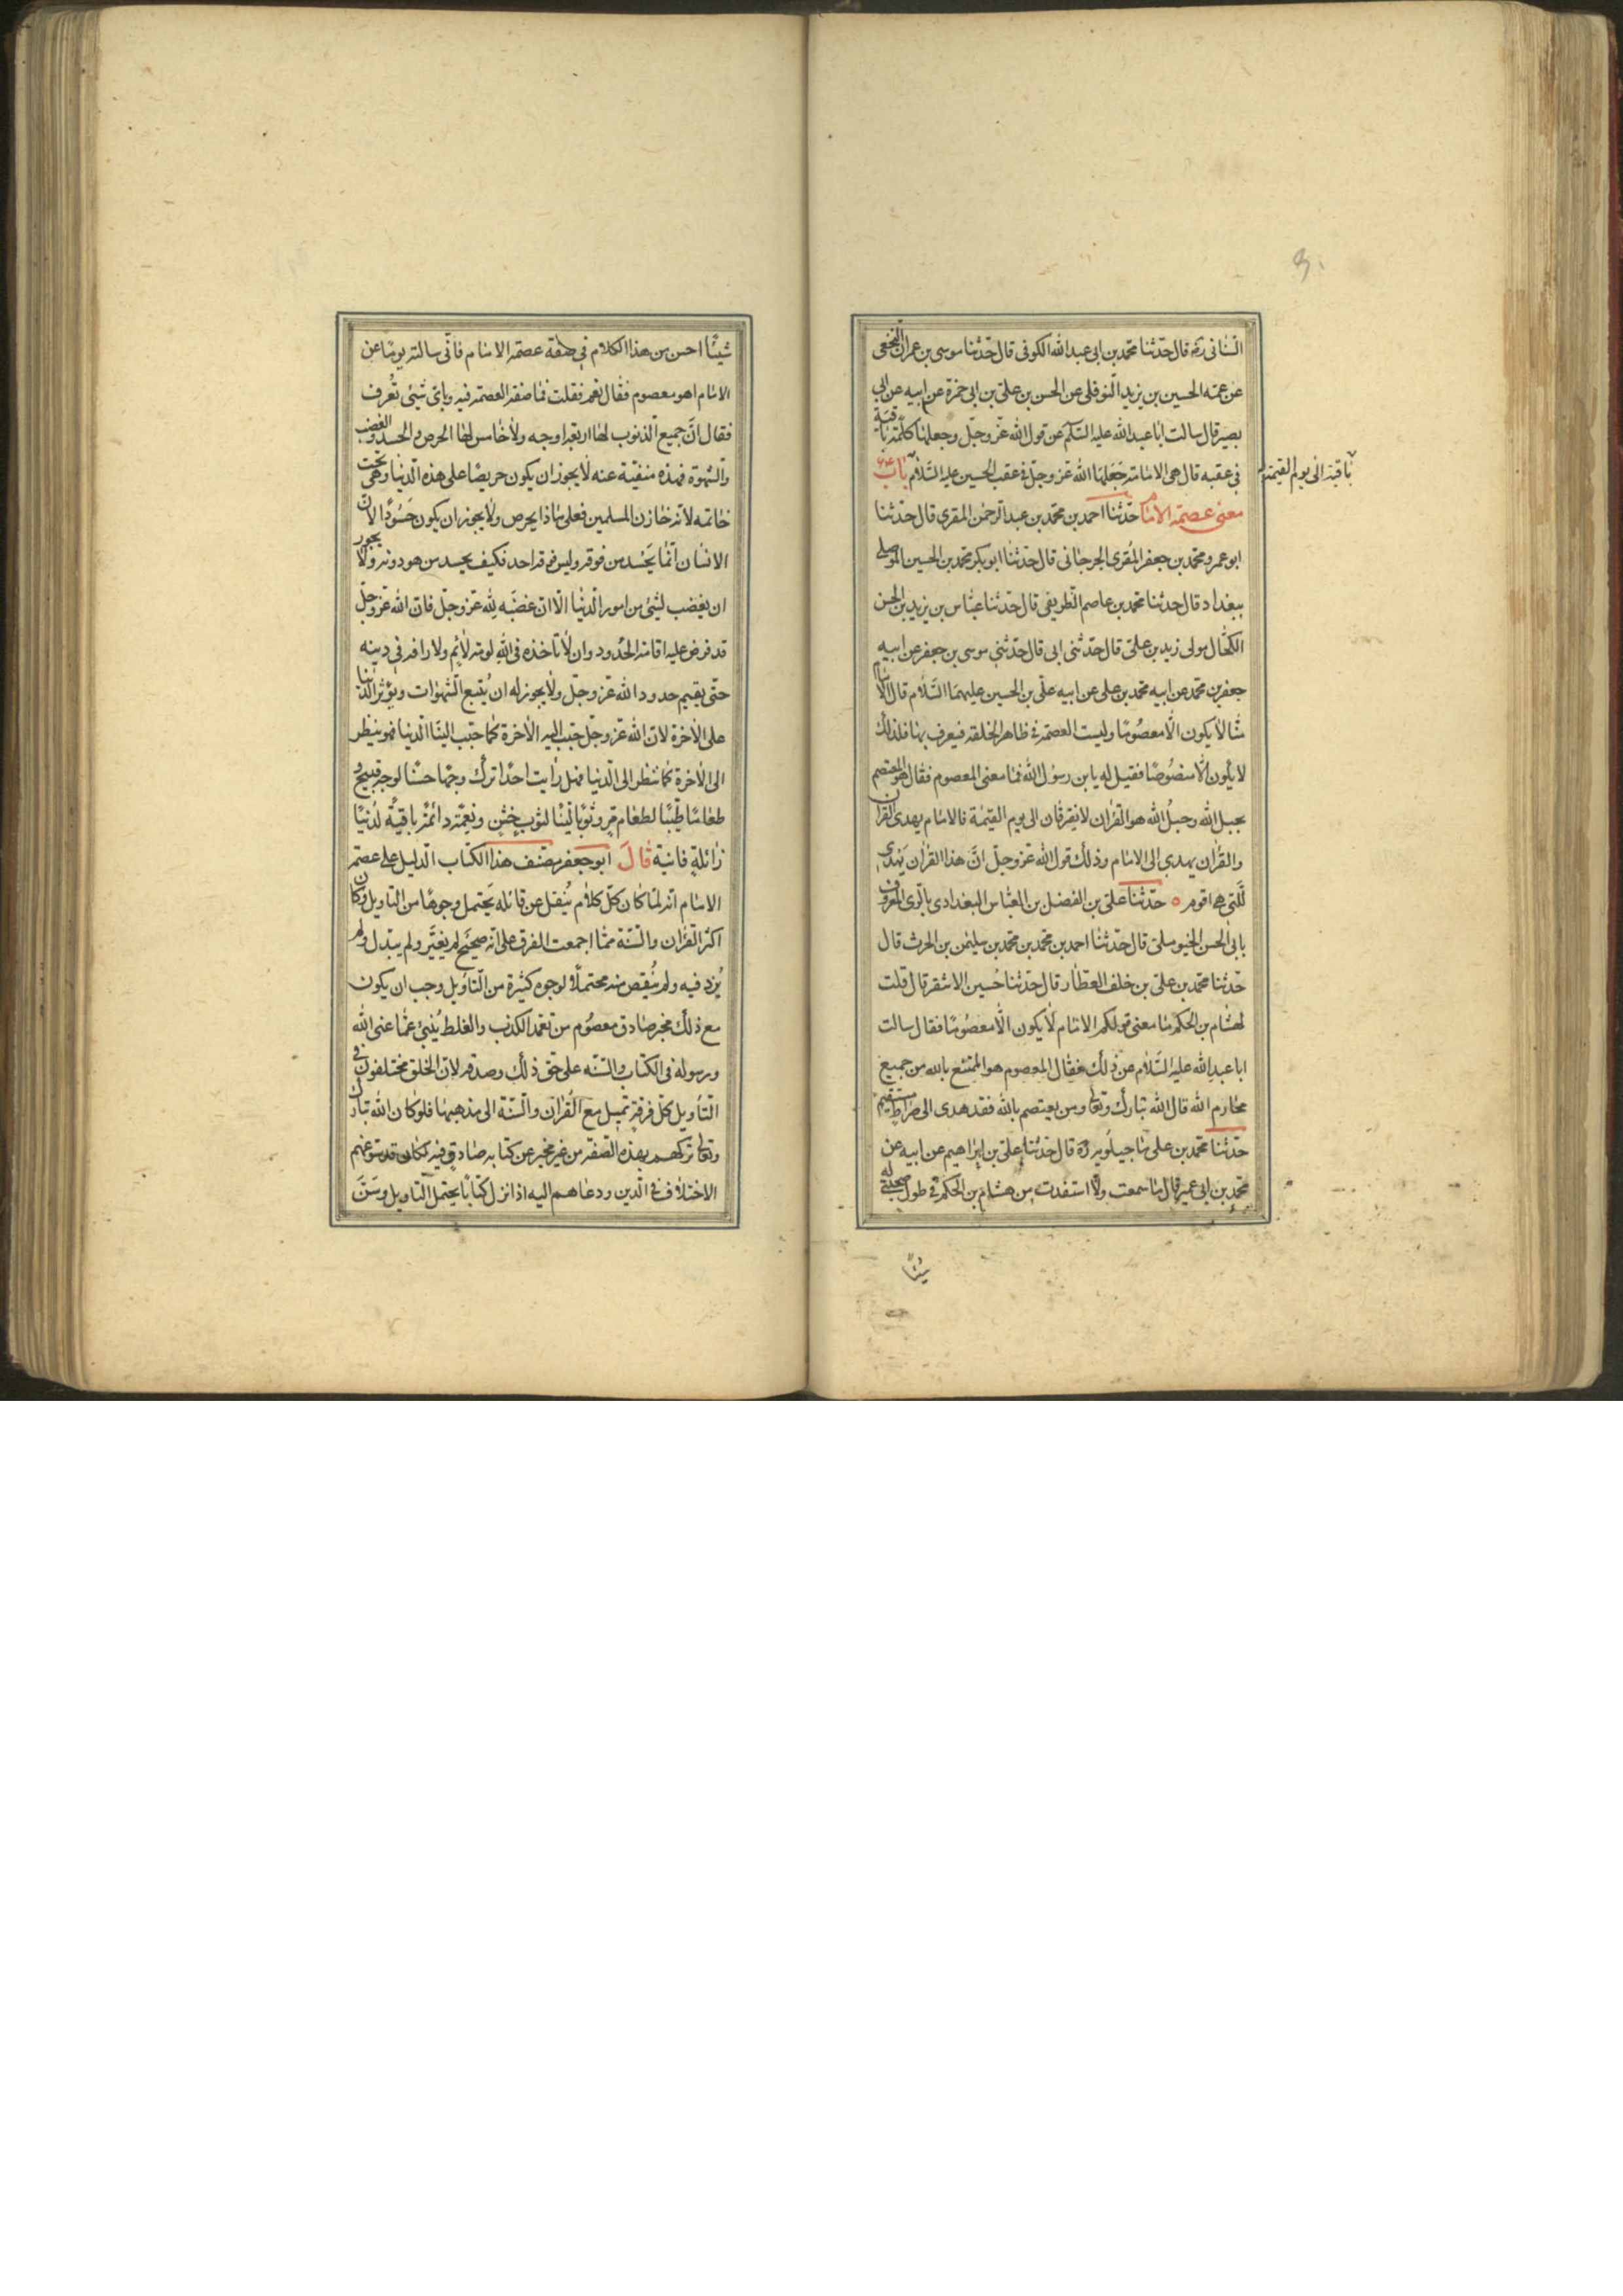 السنانى ره قال حدثنا محمد بن ابى عبد الله الكوفى قال حدثنا موسى بن عمران النخعى
عن عمه الحسين بن يزيد النوفلى عن الحسن بن على بن ابى حمزة عن ابيه عن ابى
بصير قال سالت ابا عبد الله عليه السلم عن قول الله عز وجل وجعلها كلمة باقية
فى عقبه قال هى الامامة جعلها الله عز وجل فى عقب الحسين عليه السلام باب
باقية الى يوم القيمة
معنى عصمة الامام حدثنا احمد بن محمد بن عبد الرحمن المقرى قال حدثنا
ابو عمرو محمد بن جعفر المقرى الجرجانى قال حدثنا ابو بكر محمد بن الحسين الموصلى
ببغداد قال حدثنا محمد بن عاصم الطريفى قال حدثنا عباس بن يزيد بن الحسن
الكحال مولى زيد بن على قال حدثنى ابى قال حدثنى موسى بن جعفر عن ابيه
جعفر بن محمد عن ابيه محمد بن على عن ابيه على بن الحسين عليهما السلام قال الامام
منا لا يكون الا معصوما وليست العصمة فى ظاهر الخلقة فيعرف بها فلذلك
لا يكون الا منصوصا فقيل له يا بن رسول الله فما معنى المعصوم فقال هو المعتصم
بحبل الله وحبل الله هو القران لا يفترقان الى يوم القيمة فالامام يهدى الى القران
والقران يهدى الى الامام وذلك قول الله عز وجل ان هذا القران يهدى
للتى هى اقوم ه حدثنا على بن الفضل بن العباس البغدادى بالرى المعروف
بابى الحسن الحنيوسلى قال حدثنا احمد بن محمد بن محمد بن سليمن بن الحرث قال
حدثنا محمد بن على بن خلف العطار قال حدثنا حسين الاشقر قال قلت
لهشام بن الحكم ما معنى قولكم الامام لا يكون الا معصوما فقال سالت
ابا عبد الله عليه السلام عن ذلك فقال المعصوم هو الممتنع بالله من جميع
محارم الله قال الله تبارك وتعالى ومن يعتصم بالله فقد هدى الى صراط مستقيم
حدثنا محمد بن على ماجيلويه ره قال حدثنا على بن ابراهيم عن ابيه عن
محمد بن ابى عمير قال ما سمعت ولا استفدت من هشام بن الحكم فى طول صحبتى له
شيئا
شيئا احسن من هذا الكلام فى صفة عصمة الامام فانى سالته يوما عن
الامام اهو معصوم فقال نعم فقلت فما صفة العصمة فيه وباى شىء تعرف
فقال ان جميع الذنوب لها اربعة اوجه ولا خامس لها الحرص والحسد والغضب
والشهوة فهذه منفية عنه لا يجوز ان يكون حريصا على هذه الدنيا وهى تحت
خاتمه لانه خازن المسلمين فعلى ماذا يحرص ولا يجوز ان يكون حسودا لان
الانسان انما يحسد من فوقه وليس فوقه احد فكيف يحسد من هو دونه ولا يجوز
ان يغضب لشىء من امور الدنيا الا ان غضبه لله عز وجل فان الله عز وجل
قد فرض عليه اقامة الحدود وان لا تاخذه فى الله لومة لائم ولا رافة فى دينه
حتى يقيم حدود الله عز وجل ولا يجوز له ان يتبع الشهوات ويؤثر الدنيا
على الاخرة لان الله عز وجل حبب اليه الاخرة كما حبب الينا الدنيا فهو ينظر
الى الاخرة كما ننظر الى الدنيا فهل رايت احدا ترك وجها حسنا لوجه قبيح و
طعاما طيبا لطعام مر وثوبا لينا لثوب خشن ونعمة دائمة باقية لدنيا
زائلة فانية قال ابو جعفر مصنف هذا الكتاب الدليل على عصمة
الامام انه لما كان كل كلام ينقل عن قائله يحتمل وجوها من التاويل وكان
اكثر القران والسنة مما اجمعت الفرق على انه صحيح لم يغير ولم يبدل ولم
يزد فيه ولم ينقص منه محتملا لوجوه كثيرة من التاويل وجب ان يكون
مع ذلك مخبر صادق معصوم من تعمد الكذب والغلط ينبئ عما عنى الله
ورسوله فى الكتاب والسنة على حق ذلك وصدقه لان الخلق مختلفون فى
التاويل كل فرقة تميل مع القران والسنة الى مذهبها فلو كان الله تبارك
وتعالى تركهم بهذه الصفة من غير مخبر عن كتابه صادق فيه لكان قد سوغهم
الاختلاف فى الدين ودعاهم اليه اذ انزل كتابا يحتمل التاويل وسن